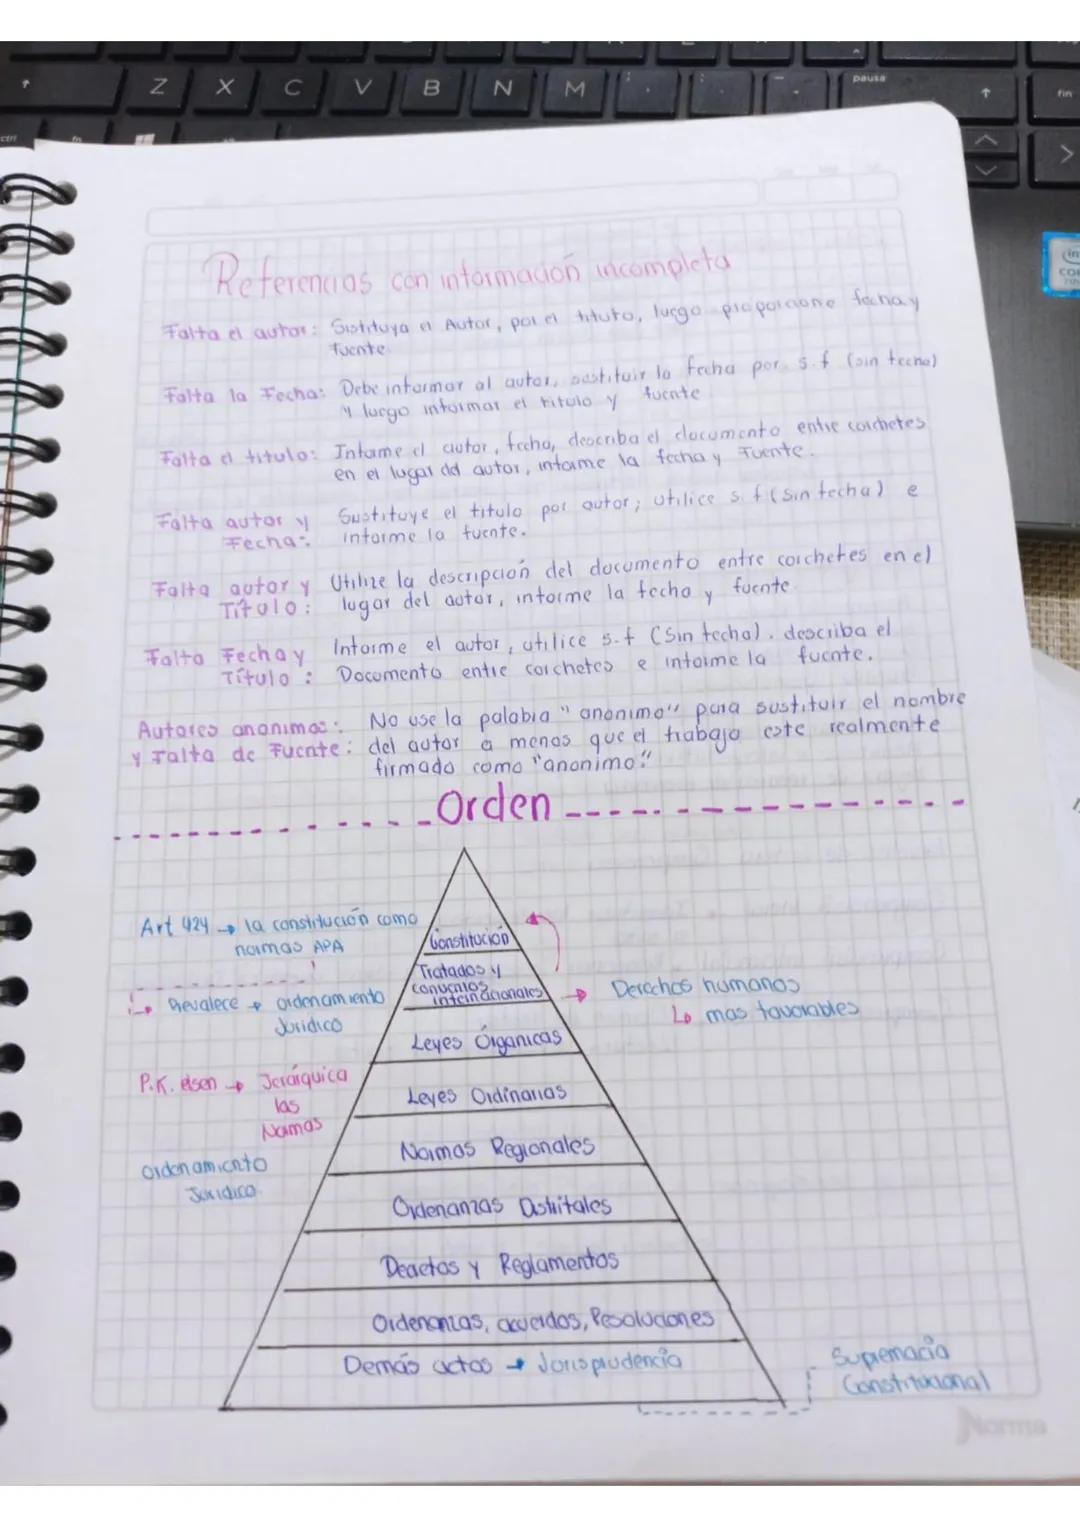 Z X C V B N M
pausa
fin
ctrl
fn
Referencias con información incompleta
Falta el autor: Sistituya el Autor, por el titulo, luego proporcione fecha y
fuente.
Falta la Fecha: Debe informar al autor, sustituir la fecha por s.f (sin fecha)
y luego informar el titulo y fuente
Falta el titulo: Informe el autor, fecha, describa el documento entre corchetes
en el lugar del autor, informe la fecha y Fuente.
Falta autor y Sustituye el titulo por autor; utilice s.f (sin fecha) e
Fecha: informe la fuente.
Falta autor y Utilize la descripción del documento entre corchetes en el
Título: lugar del autor, informe la fecha y fuente.
Falta Fecha y Informe el autor, utilice s.f (Sin fecha). describa el
Título: Documento entre corchetes e informe la fuente.
Autores anonimos: No use la palabra "anonimo" para sustituir el nombre
y Falta de Fuente: del autor a menos que el trabajo este realmente
firmado como "anonimo".
Orden
Art 424 → la constitución como
normas APA
Constitución
Tratados y
convenios
internacionales
→ Derechos humanos
↳ mas favorables
↳ Prevalece → ordenamiento
Juridico
Leyes Órganicas
P.K. elsen → Jerárquica
las
Normas
Leyes Ordinarias
Normas Regionales
ordenamiento
Juridico.
Ordenanzas Distritales
Decretos y Reglamentos
Ordenanzas, acuerdos, Resoluciones
Demás actos → Jurisprudencia
Supremacia
Constitucional
Norma